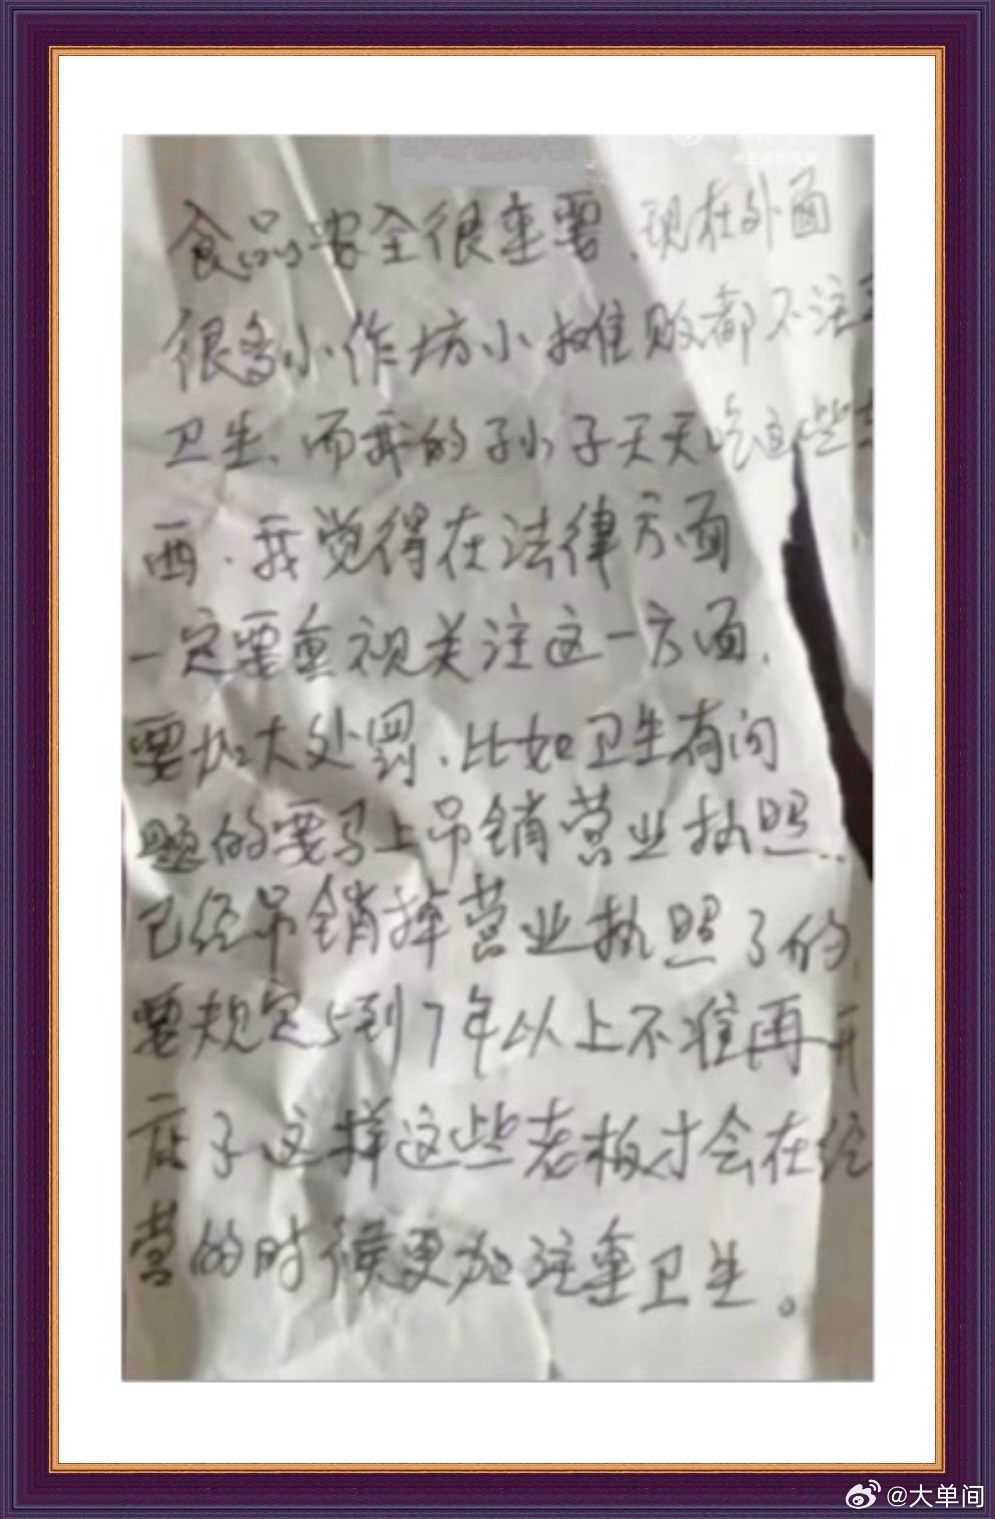 食品安全很重要、现在外面
很多小作坊小摊败都不注
卫生、而我的孙子天天吃这些
西．我觉得在法律方面
一定要重视关注这一方面，
要加大处罚、比如卫生有问
题的要马上吊销营业执照．
已经吊销掉营业执照了的，
要规定5到7年以上不准再开
店子这样这些老板才会在经
营的时候更加注重卫生。
@大单间